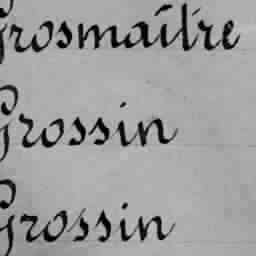 Grosmaître
Grossin
Grossin